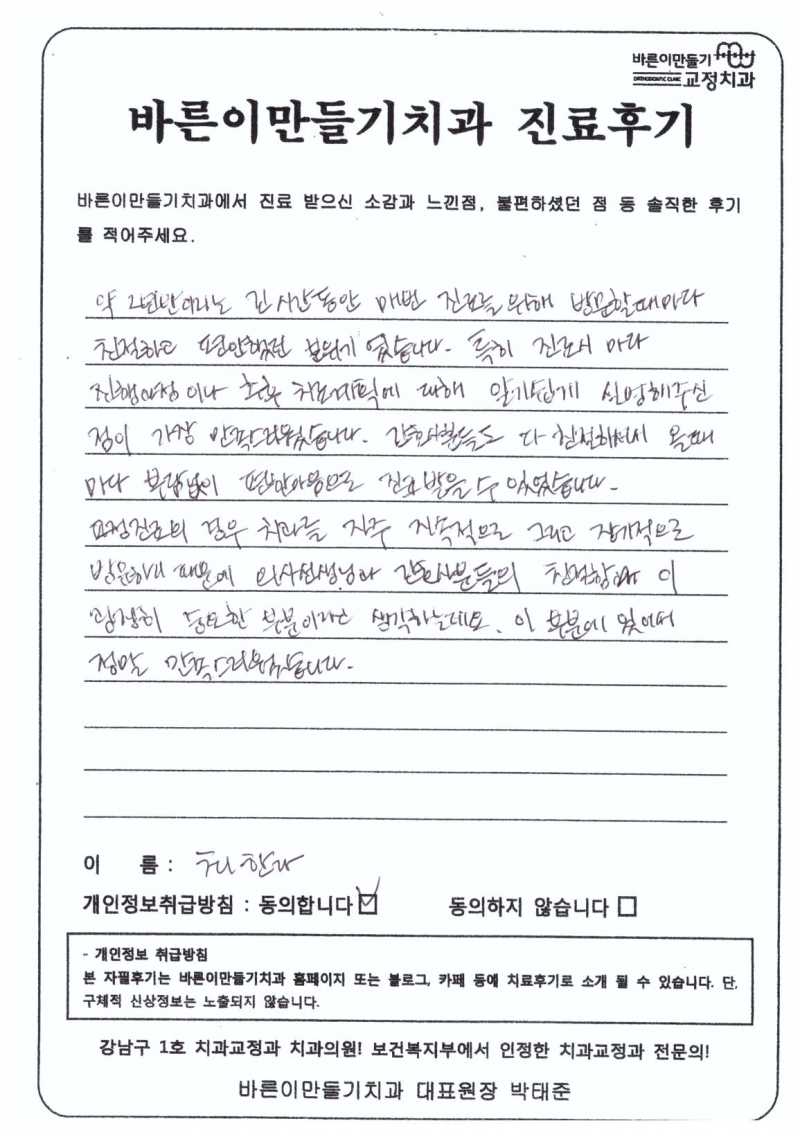 바른이만들기
ORTHODONTIC CLINIC 교정치과
바른이만들기치과 진료후기
바른이만들기치과에서 진료 받으신 소감과 느낀점, 불편하셨던 점 등 솔직한 후기
를 적어주세요.
약 2년반이라는 긴 시간동안 매번 진료를 위해 방문할때마다
친절하고 편안했던 분위기 였습니다. 특히 진료시 마다
진행사항 이나 추후 치료계획에 대해 알기쉽게 설명해주신
점이 가장 만족스러웠습니다. 간호사분들도 다 친절하셔서 올때
마다 부담없이 편한마음으로 진료 받을 수 있었습니다.
교정진료의 경우 치과를 자주 지속적으로 그리고 장기적으로
방문하기 때문에 의사선생님과 간호사분들의 친절함 이
굉장히 중요한 부분이라고 생각하는데요, 이 부분에 있어서
정말 만족스러웠습니다.
이 름 :
개인정보취급방침 : 동의합니다 동의하지 않습니다
- 개인정보 취급방침
본 자필후기는 바른이만들기치과 홈페이지 또는 블로그, 카페 등에 치료후기로 소개 될 수 있습니다. 단,
구체적 신상정보는 노출되지 않습니다.
강남구 1호 치과교정과 치과의원! 보건복지부에서 인정한 치과교정과 전문의!
바른이만들기치과 대표원장 박태준